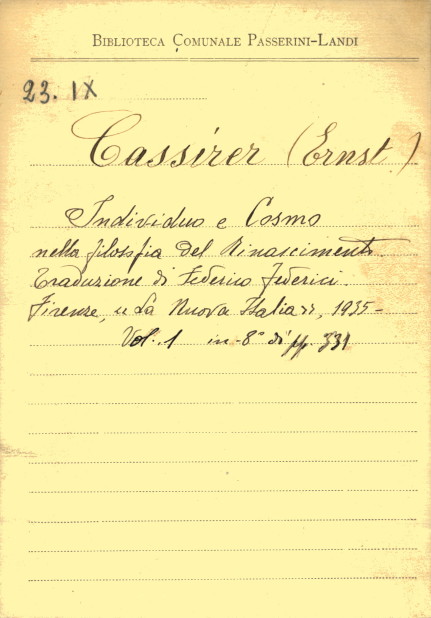 BIBLIOTECA COMUNALE PASSERINI-LANDI
23. IX
Cassirer (Ernst)
Individuo e Cosmo
nella filosofia del Rinascimento.
Traduzione di Federico Federici.
Firenze, « La Nuova Italia », 1935-
Vol. 1 in-8° di pp. 331